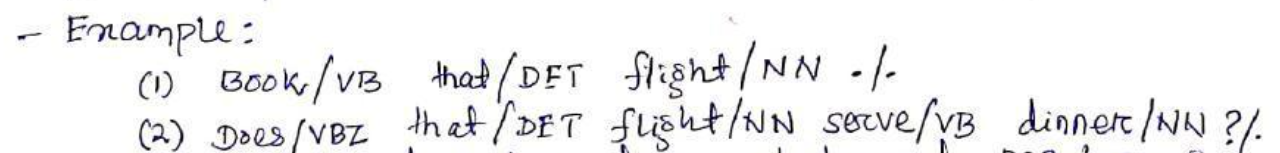 - Example:
(1) Book/VB that/DET flight/NN ./.
(2) Does/VBZ that/DET flight/NN serve/VB dinner/NN ?/.